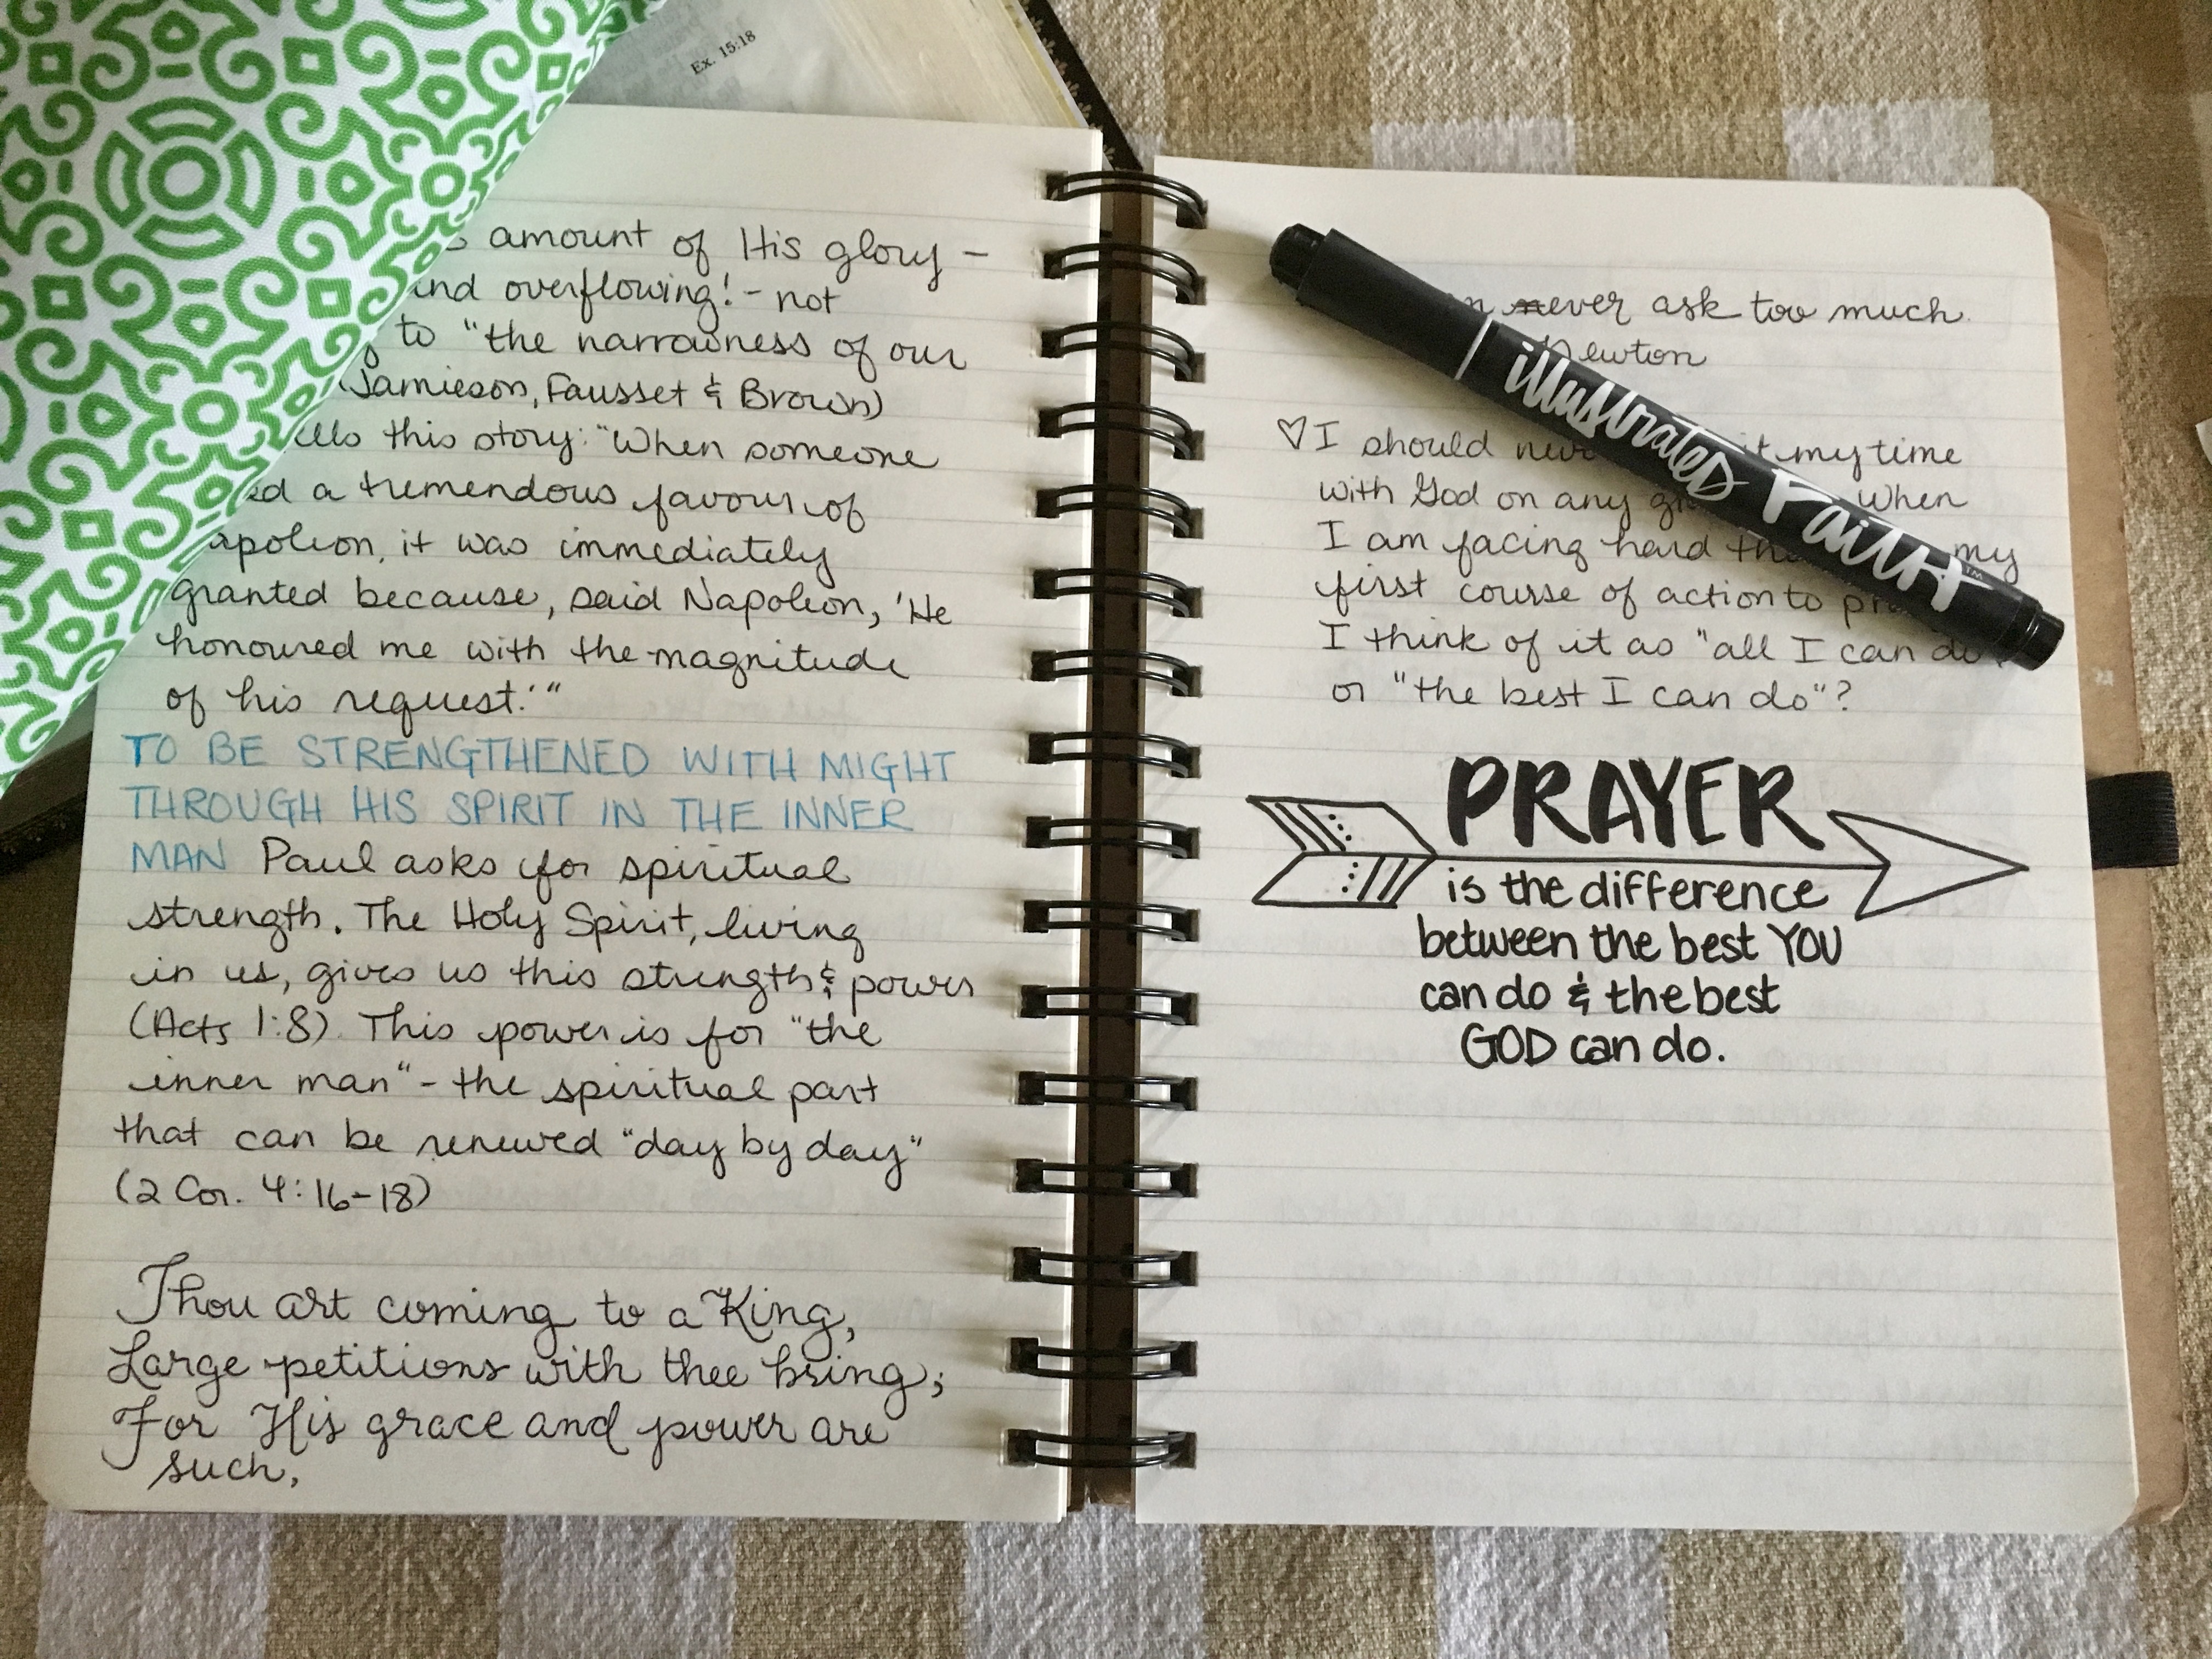 Ex. 15:18
amount of His glory -
and overflowing! - not
to "the narrowness of our
(Jamieson, Fausset & Brown)
this story: "When someone
a tremendous favour of
Napoleon, it was immediately
granted because, said Napoleon, 'He
honoured me with the magnitude
of his request.'"
TO BE STRENGTHENED WITH MIGHT
THROUGH HIS SPIRIT IN THE INNER
MAN Paul asks for spiritual
strength. The Holy Spirit, living
in us, gives us this strength & power
(Acts 1:8). This power is for "the
inner man" - the spiritual part
that can be renewed "day by day"
(2 Cor. 4:16-18)
Thou art coming to a King,
Large petitions with thee bring;
For His grace and power are
such,
ever ask too much.
Newton
♡ I should my time
with God on any When
I am facing hard my
first course of action to
I think of it as "all I can do"
or "the best I can do"?
illustrated Faith™
PRAYER
is the difference
between the best YOU
can do & the best
GOD can do.